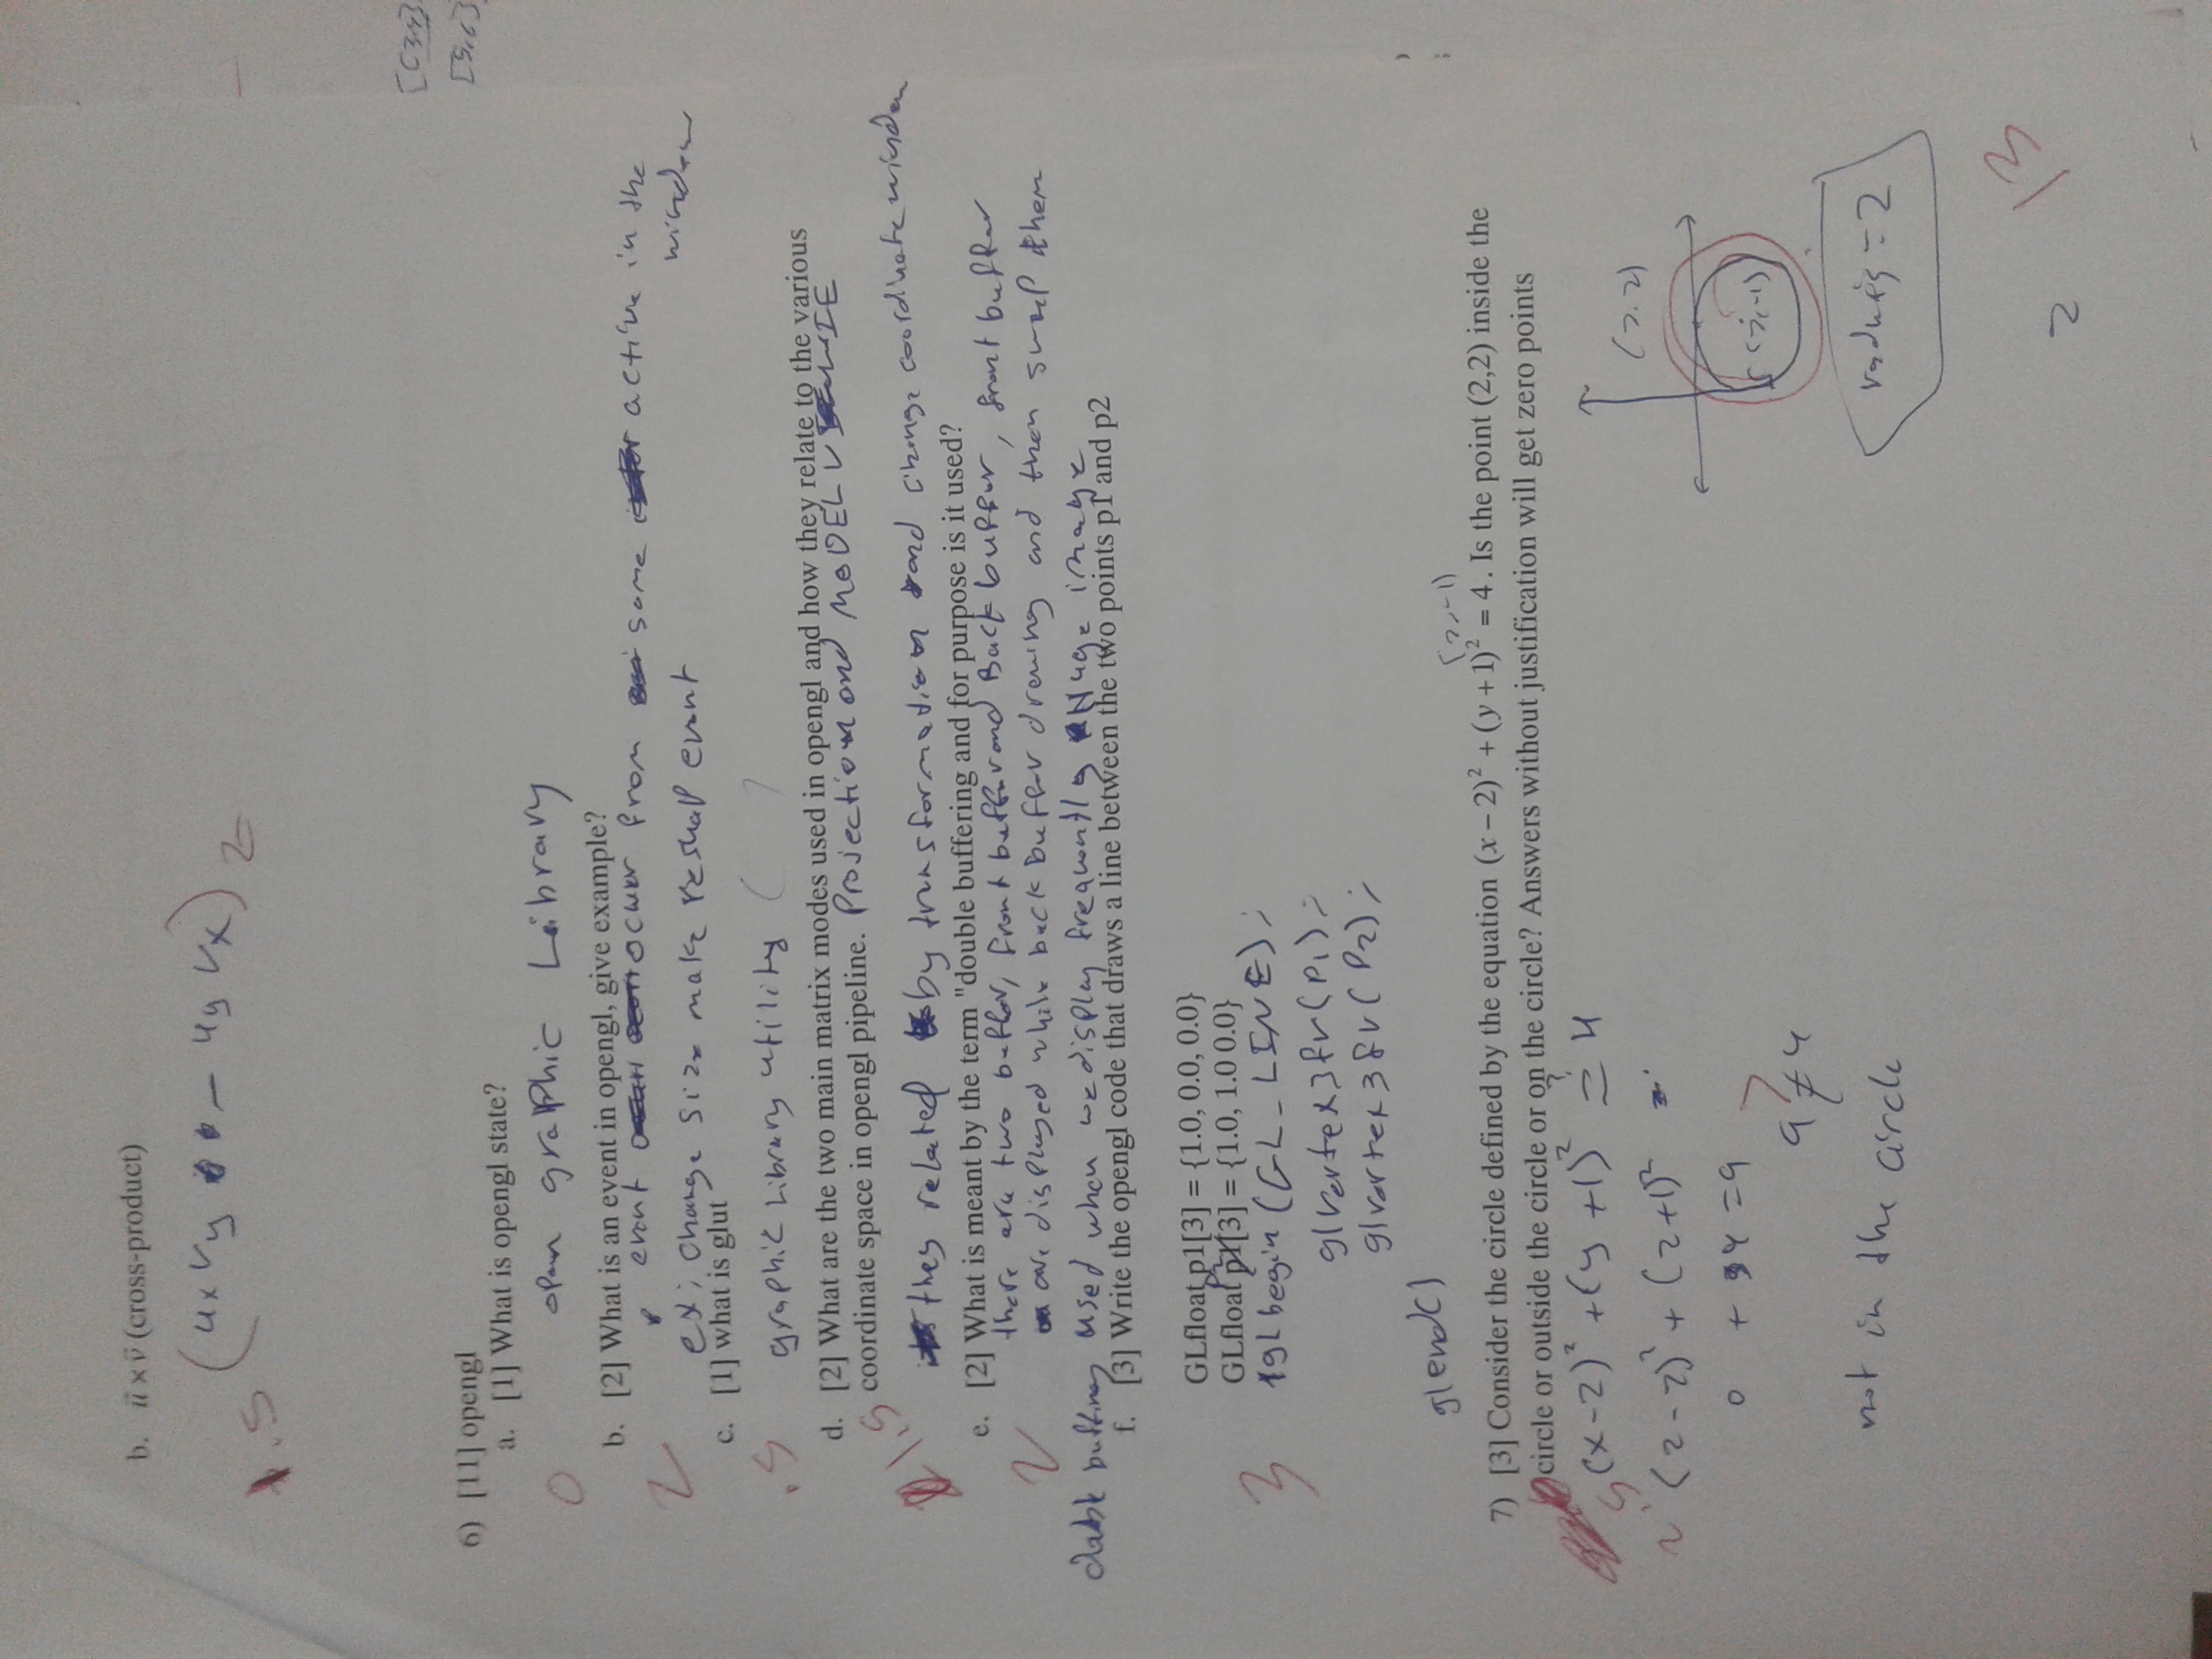 [3,2]
[5,6]
b. ū × v̄ (cross-product)
(ux vy - uy vx) 2
.5
6) [11] opengl
a. [1] What is opengl state?
open graphic Library
0
b. [2] What is an event in opengl, give example?
event ocuer from some action in the
window
ex: change size make reshap event
2
c. [1] what is glut
graphic Library utility ( )
.5
d. [2] What are the two main matrix modes used in opengl and how they relate to the various
coordinate space in opengl pipeline. Projection and MODEL VIE
they related by transformation and change coordinate window
1.5
e. [2] What is meant by the term "double buffering and for purpose is it used?
there are two buffer, front buffer and Back buffer, front buffer
are displayed while back buffer drewing and then swap them
duble buffring used when we display frequently Huge image
2
f. [3] Write the opengl code that draws a line between the two points p1 and p2
GLfloat p1[3] = {1.0, 0.0, 0.0}
GLfloat p2[3] = {1.0, 1.0 0.0}
glbegin (GL_LINE);
glvertex3fv(P1);
glvertex3fv(P2);
glend()
3
7) [3] Consider the circle defined by the equation (x – 2)² + (y + 1)² = 4. Is the point (2,2) inside the
(2,-1)
circle or outside the circle or on the circle? Answers without justification will get zero points
(x-2)² + (y+1)² ≟ 4
2.5
(2-2)² + (2+1)² =
0 + 9 = 9
9 ≠ 4
?
not in the circle
(2,2)
(2,-1)
radius = 2
2
13